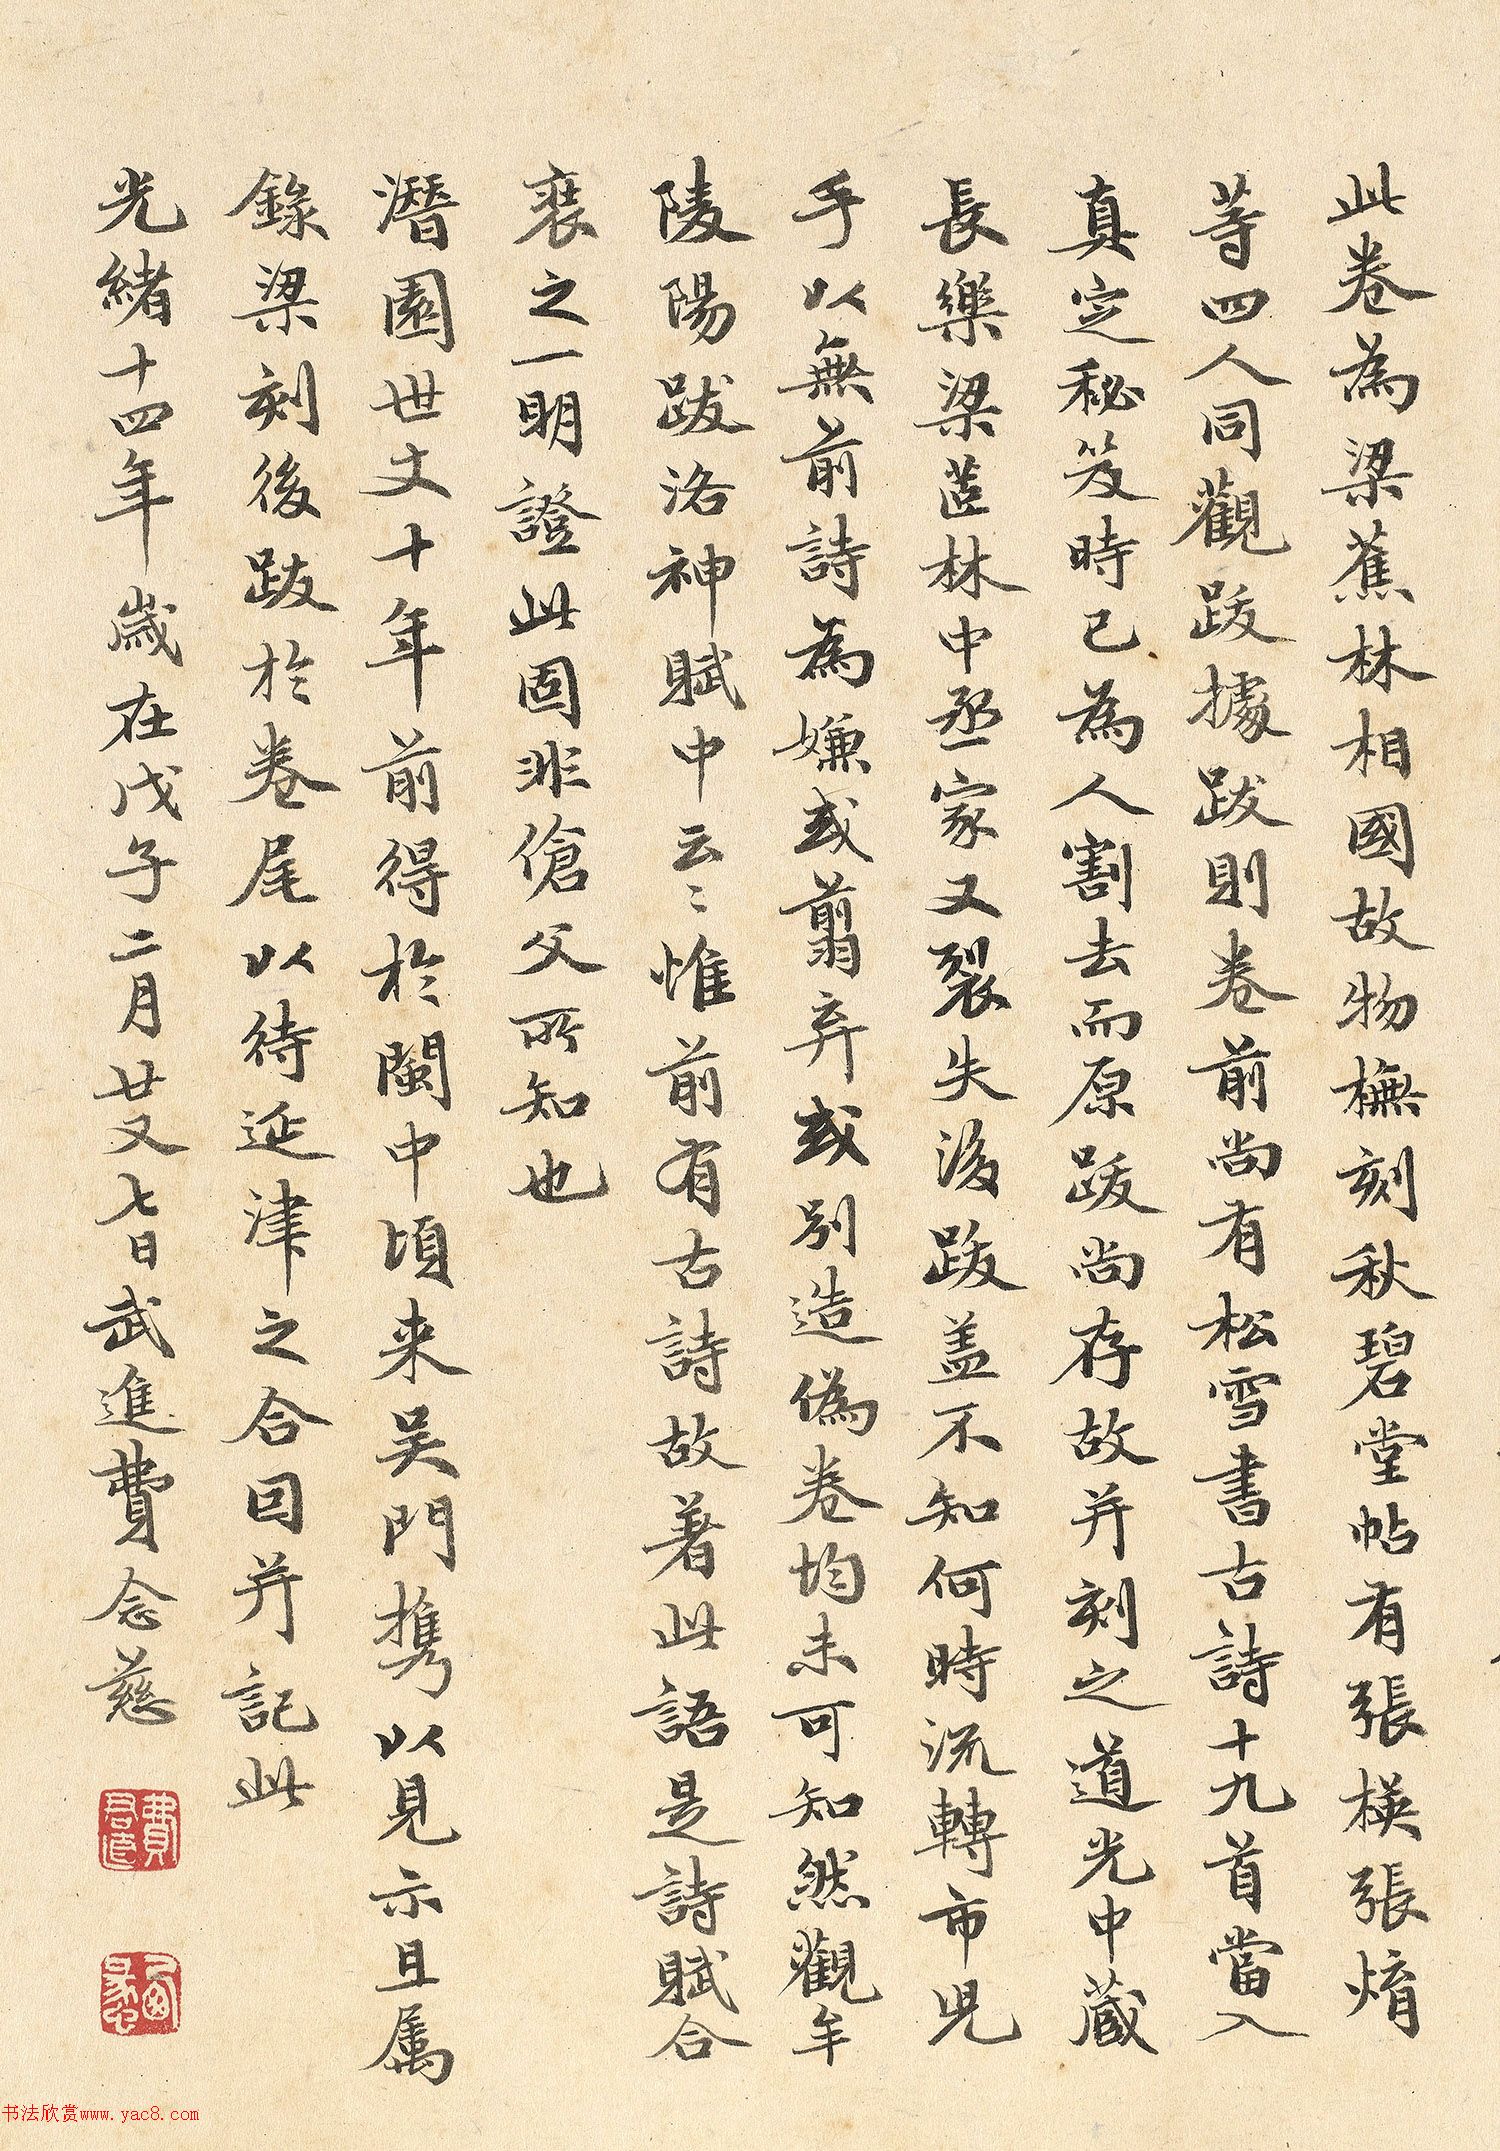 此卷為梁蕉林相國故物橅刻秋碧堂帖有張楧張焴
等四人同觀跋據跋則卷前尚有松雪書古詩十九首當入
真定秘笈時已為人割去而原跋尚存故并刻之道光中藏
長樂梁茝林中丞家又裂失後跋盖不知何時流轉市児
手以無前詩為嫌或翦弃或別造偽卷均未可知然觀牟
陵陽跋洛神賦中云〻惟前有古詩故著此語是詩賦合
裝之一明證此固非傖父所知也
潛園世丈十年前得於閩中頃来吴門携以見示且属
錄梁刻後跋於卷尾以待延津之合回并記此
光緒十四年歲在戊子二月廿又七日武進費念慈
費君直
書法欣赏www.yac8.com